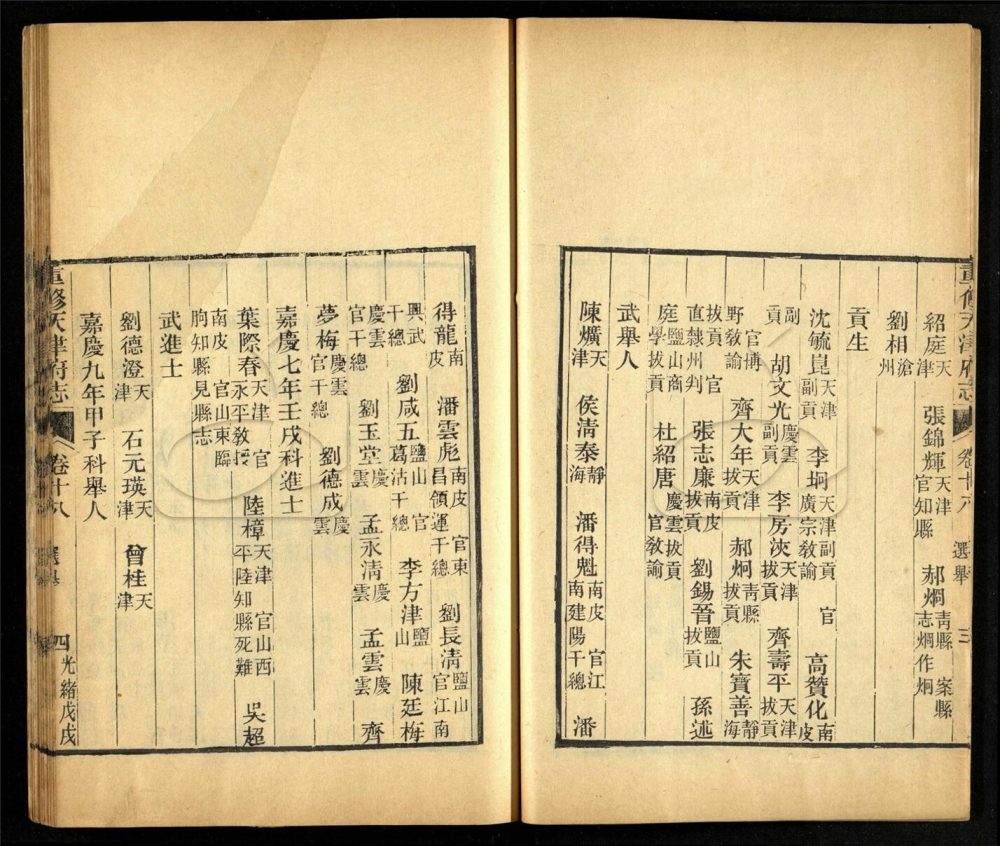 重修天津府志 卷十八 選舉 三
紹庭天津 張錦輝天津官知縣 郝烱青縣案縣志烱作炯
劉相滄州
貢生
沈毓崑天津副貢 李坰天津副貢官廣宗敎諭 高贊化南皮
副貢 胡文光慶雲副貢 李房浹天津拔貢 齊壽平天津拔貢
官博野敎諭 齊大年天津拔貢 郝炯青縣拔貢 朱寶善靜海
拔貢官直隸州判 張志廉南皮拔貢 劉錫晉鹽山拔貢 孫述
庭鹽山商學拔貢 杜紹唐慶雲拔貢官敎諭
武舉人
陳爌天津 侯淸泰靜海 潘得魁南皮官江南建陽千總 潘
得龍南皮 潘雲彪南皮官東昌領運千總 劉長淸鹽山官江南
興武千總 劉咸五鹽山官葛沽千總 李方津鹽山 陳廷梅
慶雲官千總 劉玉堂慶雲 孟永淸慶雲 孟雲慶雲 齊
夢梅慶雲官千總 劉德成慶雲
嘉慶七年壬戌科進士
葉際春天津官永平敎授 陸樟天津官山西平陸知縣死難 吳超
南皮官山東臨朐知縣見縣志
武進士
劉德澄天津 石元瑛天津 曾桂天津
嘉慶九年甲子科舉人
重修天津府志 卷十八 選舉 四 光緒戊戌